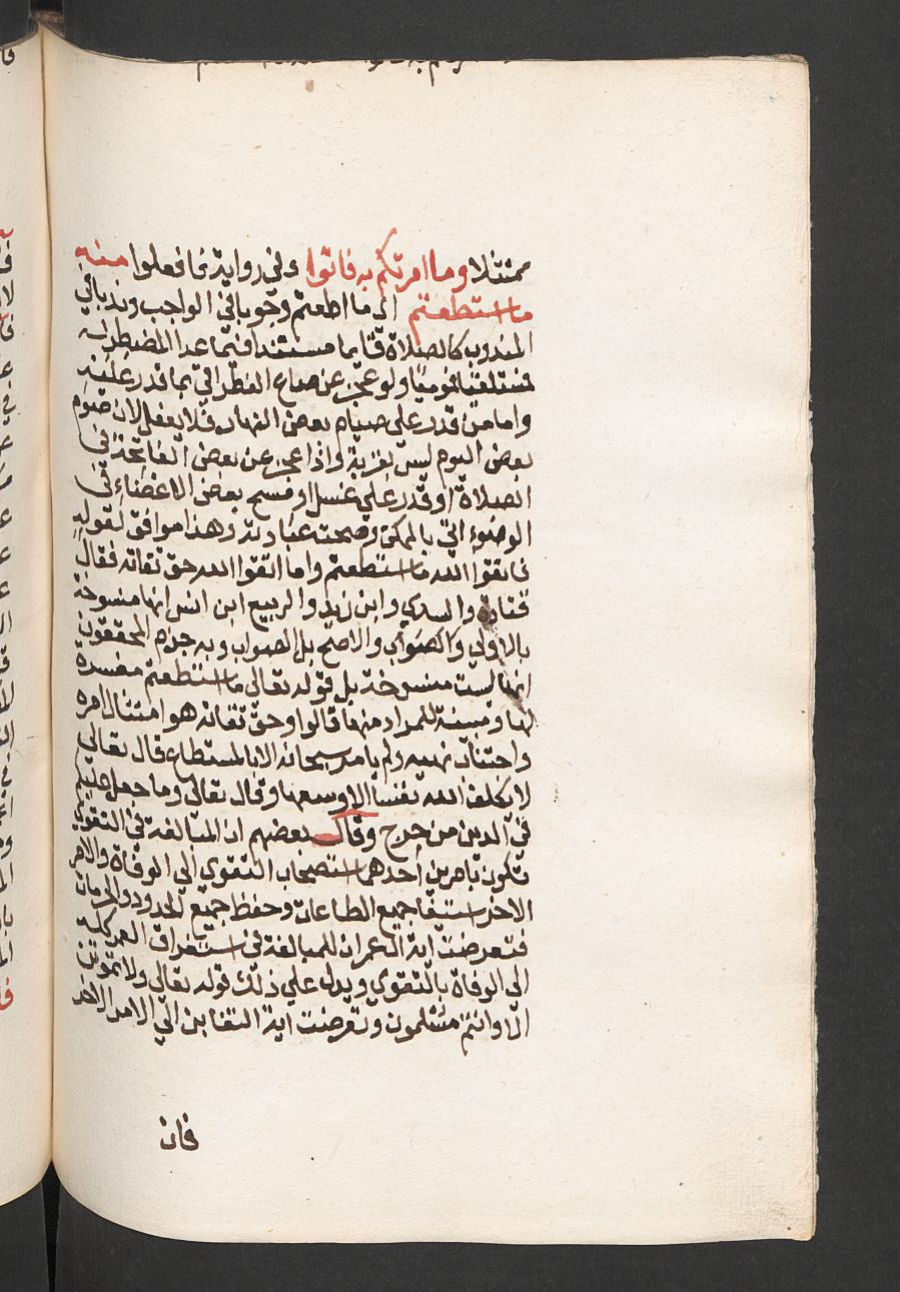 ممتثلا وما امرتكم به فاتوا وفي رواية فافعلوا منه
ما استطعتم اي ما اطعتم وجوبا في الواجب وندبا في
المندوب كالصلاة قايما مستندا فيما عدا
ولو عجز عن صاع الفطر اتي بما قدر عليه
واما من قدر علي صيام بعض النهار فلا يفعل لان صوم
بعض اليوم ليس بقربة واذا عجز عن بعض الفاتحة في
الصلاة او قدر علي غسل او مسح بعض الاعضاء في
الوضوء اتي بالممكن وصحت عبادته وهذا موافق لقوله
فاتقوا الله ما استطعتم واما اتقوا الله حق تقاته فقال
قتادة والسدي وابن زيد والربيع ابن انس انها منسوخة
بالاولي والصواب والاصح بل الصواب وبه جزم المحققون
انها ليست منسوخة بل قوله تعالي ما استطعتم مفسرة
لها ومبينة للمراد منها قالوا وحق تقاته هو امتثال امره
واجتناب نهيه ولم يامر سبحانه الا بالمستطاع قال تعالي
لا يكلف الله نفسا الا وسعها وقال تعالي وما جعل عليكم
في الدين من حرج وقال بعضهم ان المبالغة في التقوي
تكون بامرين احدهما استصحاب التقوي الي الوفاة والامر
الاخر استيفا جميع الطاعات وحفظ جميع الحدود والحرمات
فتعرضت اية ال عمران للمبالغة في استغراق العمر كله
الي الوفاة بالتقوي ويدل علي ذلك قوله تعالي ولا تموتن
الا وانتم مسلمون وتعرضت اية التغابن الي الامر الاخر
فان